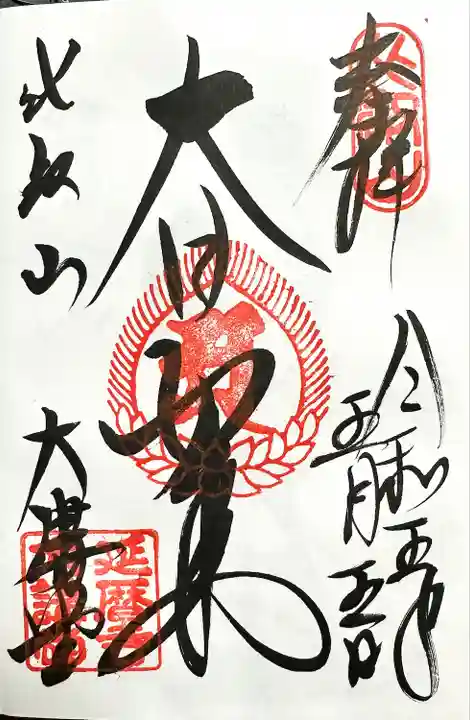 奉拝
令和五年
五月五日
大日如来
比叡山
大講堂
延暦寺